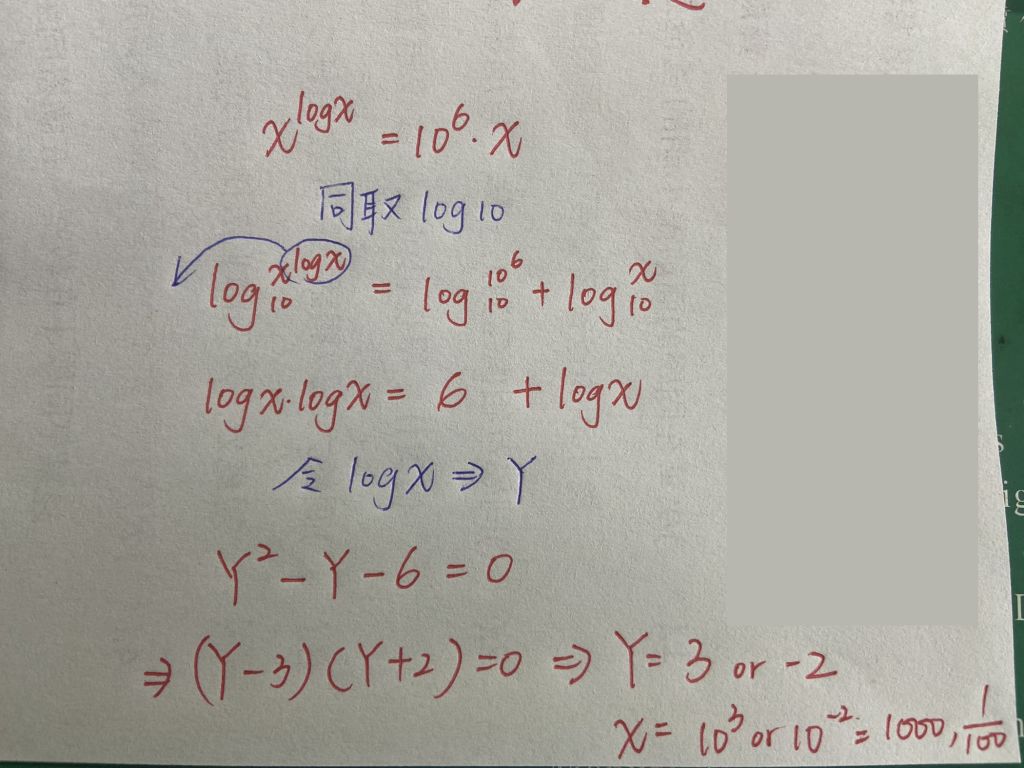 x^{log x} = 10^6 · x
同取 log 10
log_{10} x^{log x} = log_{10} 10^6 + log_{10} x
log x · log x = 6 + log x
令 log x ⇒ Y
Y^2 - Y - 6 = 0
⇒ (Y-3)(Y+2)=0 ⇒ Y= 3 or -2
x = 10^3 or 10^{-2} = 1000, \frac{1}{100}